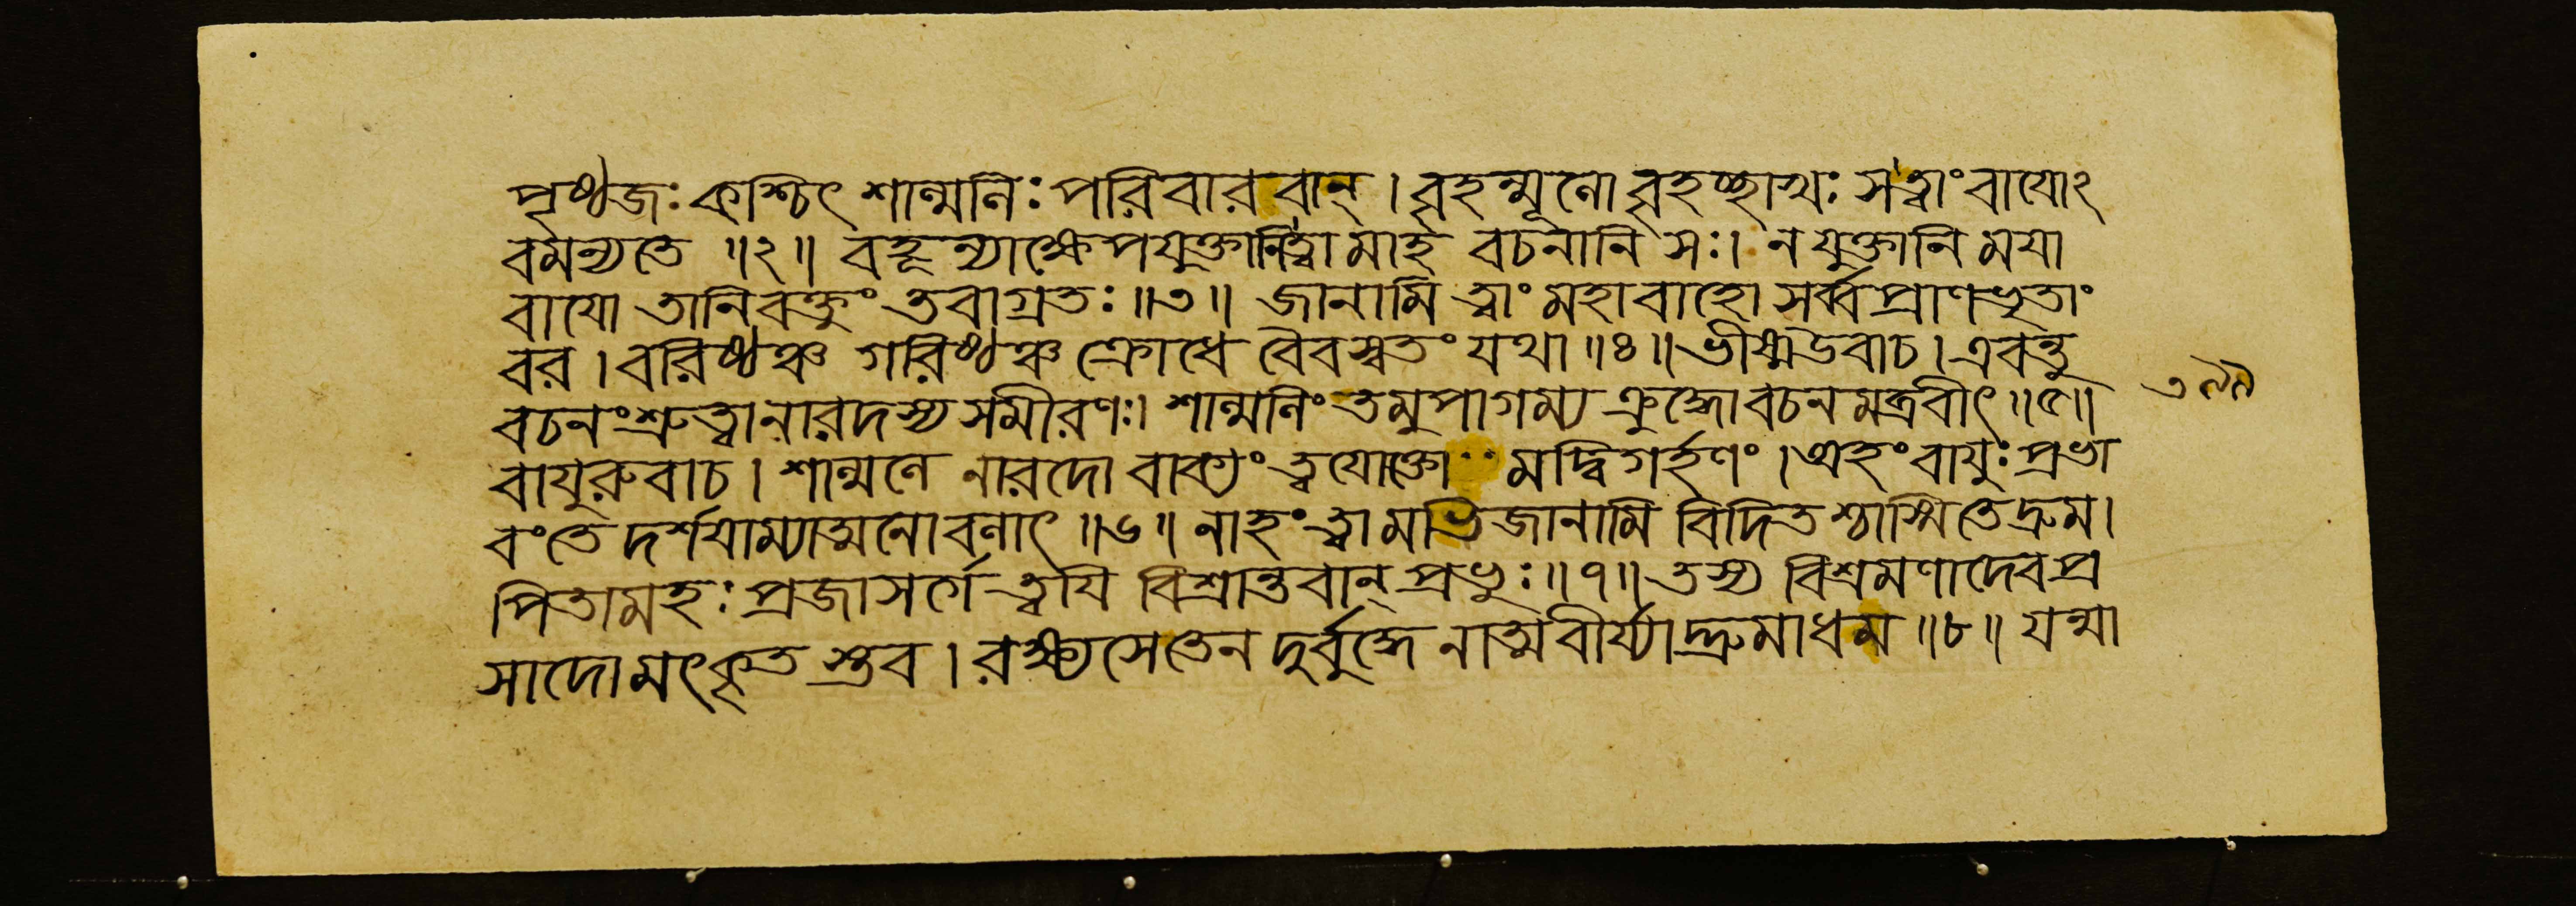 পৃষ্ঠজঃ কশ্চিৎ শাল্মলিঃ পরিবারবান্ । বৃহন্মূলো বৃহচ্ছাখঃ সত্বাং বায়োঽ
বমন্যতে ॥২॥ বহূন্যাক্ষেপযুক্তানিত্বামাহ বচনানি সঃ। নযুক্তানি ময়া
বায়ো তানিবক্তুং তবাগ্রতঃ ॥৩॥ জানামি ত্বাং মহাবাহো সর্ব্বপ্রাণভৃতাং
বর । বরিষ্ঠঞ্চ গরিষ্ঠঞ্চ ক্রোধে বৈবস্বতং যথা ॥৪॥ ভীষ্মউবাচ । এবন্তু
বচনংশ্রুত্বানারদস্য সমীরণঃ। শাল্মলিং তমুপাগম্য ক্রুদ্ধোবচনমব্রবীৎ ॥৫॥
বায়ুরুবাচ । শাল্মলে নারদো বাক্যং ত্বয়োক্তো মদ্বিগর্হণং । অহং বায়ুঃ প্রভা
বংতে দর্শয়াম্যাত্মনোবলাৎ ॥৬॥ নাহং ত্বামভিজানামি বিদিতশ্চাসিতেদ্রুম।
পিতামহঃ প্রজাসর্গে ত্বয়ি বিশ্রান্তবান্ প্রভুঃ ॥৭॥ তস্য বিশ্রমণাদেবপ্র
সাদোমৎকৃতস্তব । রক্ষ্যসেতেন দুর্বুদ্ধে নাত্মবীর্য্যাদ্দ্রুমাধম ॥৮॥ যন্মা